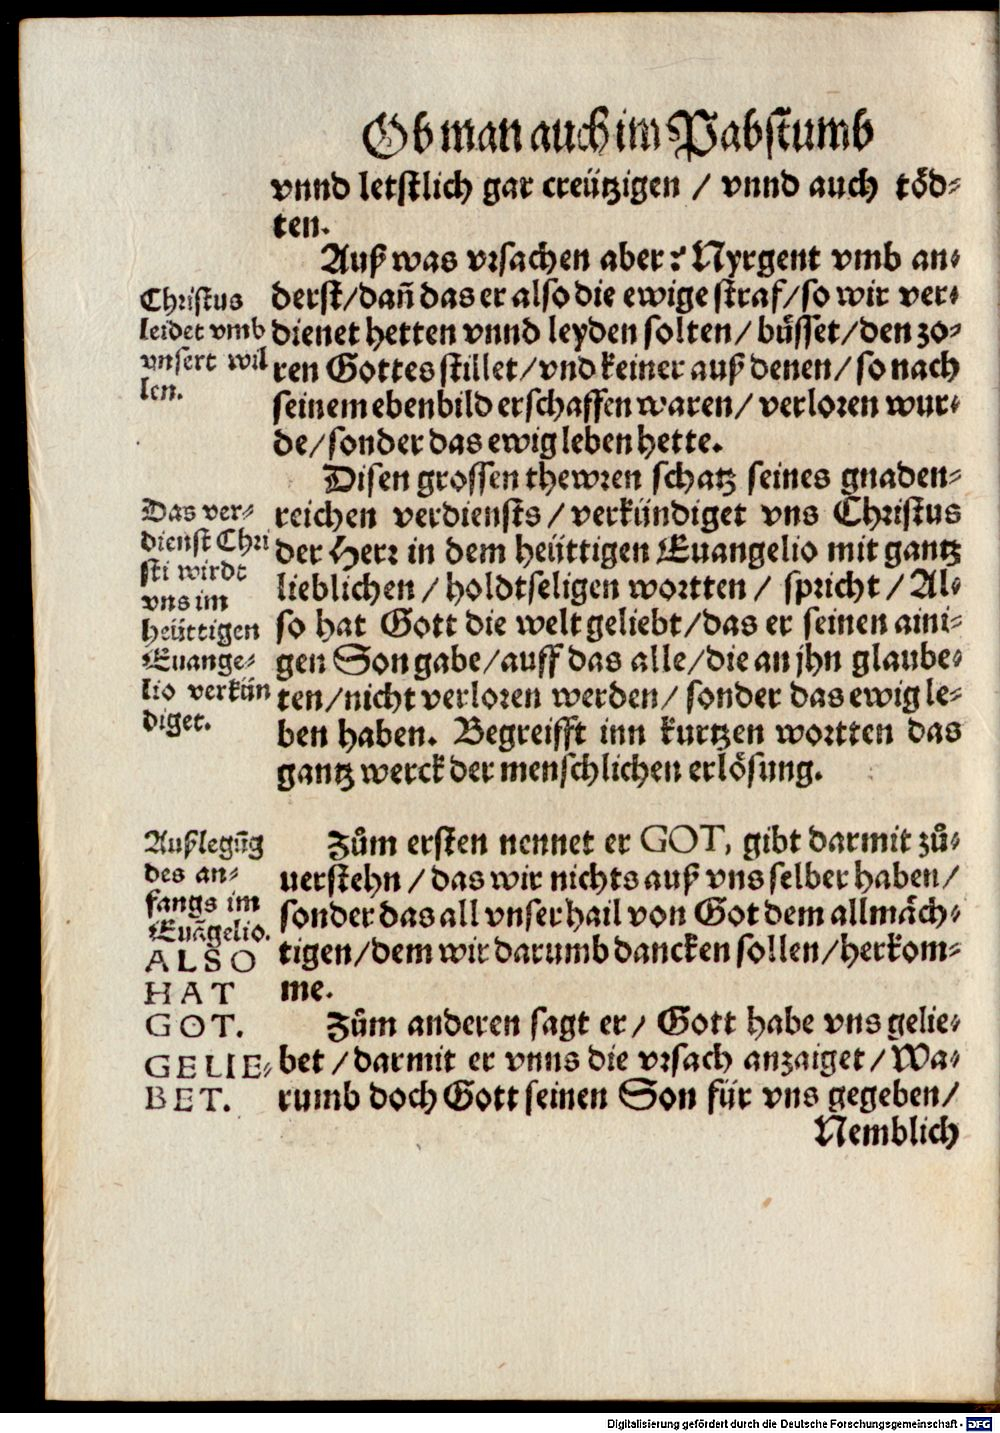 Ob man auch im Pabstumb
vnnd letstlich gar creützigen / vnnd auch töd-
ten.
Auß was vrsachen aber? Nyrgent vmb an-
derst/dañ das er also die ewige straf/so wir ver-
dienet hetten vnnd leyden solten/ büsset/den zo-
ren Gottes stillet/vnd keiner auß denen/ so nach
seinem ebenbild erschaffen waren/ verloren wur-
de/sonder das ewig leben hette.
Christus
leidet vmb
vnsert wil
len.
Disen grossen thewren schatz seines gnaden-
reichen verdiensts/ verkündiget vns Christus
der Herr in dem heüttigen Euangelio mit gantz
lieblichen / holdtseligen wortten / spricht / Al-
so hat Gott die welt geliebt/das er seinen aini-
gen Son gabe/auff das alle/die an jhn glaube-
ten/nicht verloren werden/ sonder das ewig le-
ben haben. Begreifft inn kurtzen wortten das
gantz werck der menschlichen erlösung.
Das ver-
dienst Chri
sti wirdt
vns im
heüttigen
Euange-
lio verkün
diget.
Zům ersten nennet er GOT, gibt darmit zů-
uerstehn / das wir nichts auß vns selber haben/
sonder das all vnser hail von Got dem allmäch-
tigen/dem wir darumb dancken sollen/herkom-
me.
Zům anderen sagt er/ Gott habe vns gelie-
bet / darmit er vnns die vrsach anzaiget / Wa-
rumb doch Gott seinen Son für vns gegeben/
Außlegūg
des an-
fangs im
Euāgelio.
ALSO
HAT
GOT.
GELIE-
BET.
Nemblich
Digitalisierung gefördert durch die Deutsche Forschungsgemeinschaft - DFG